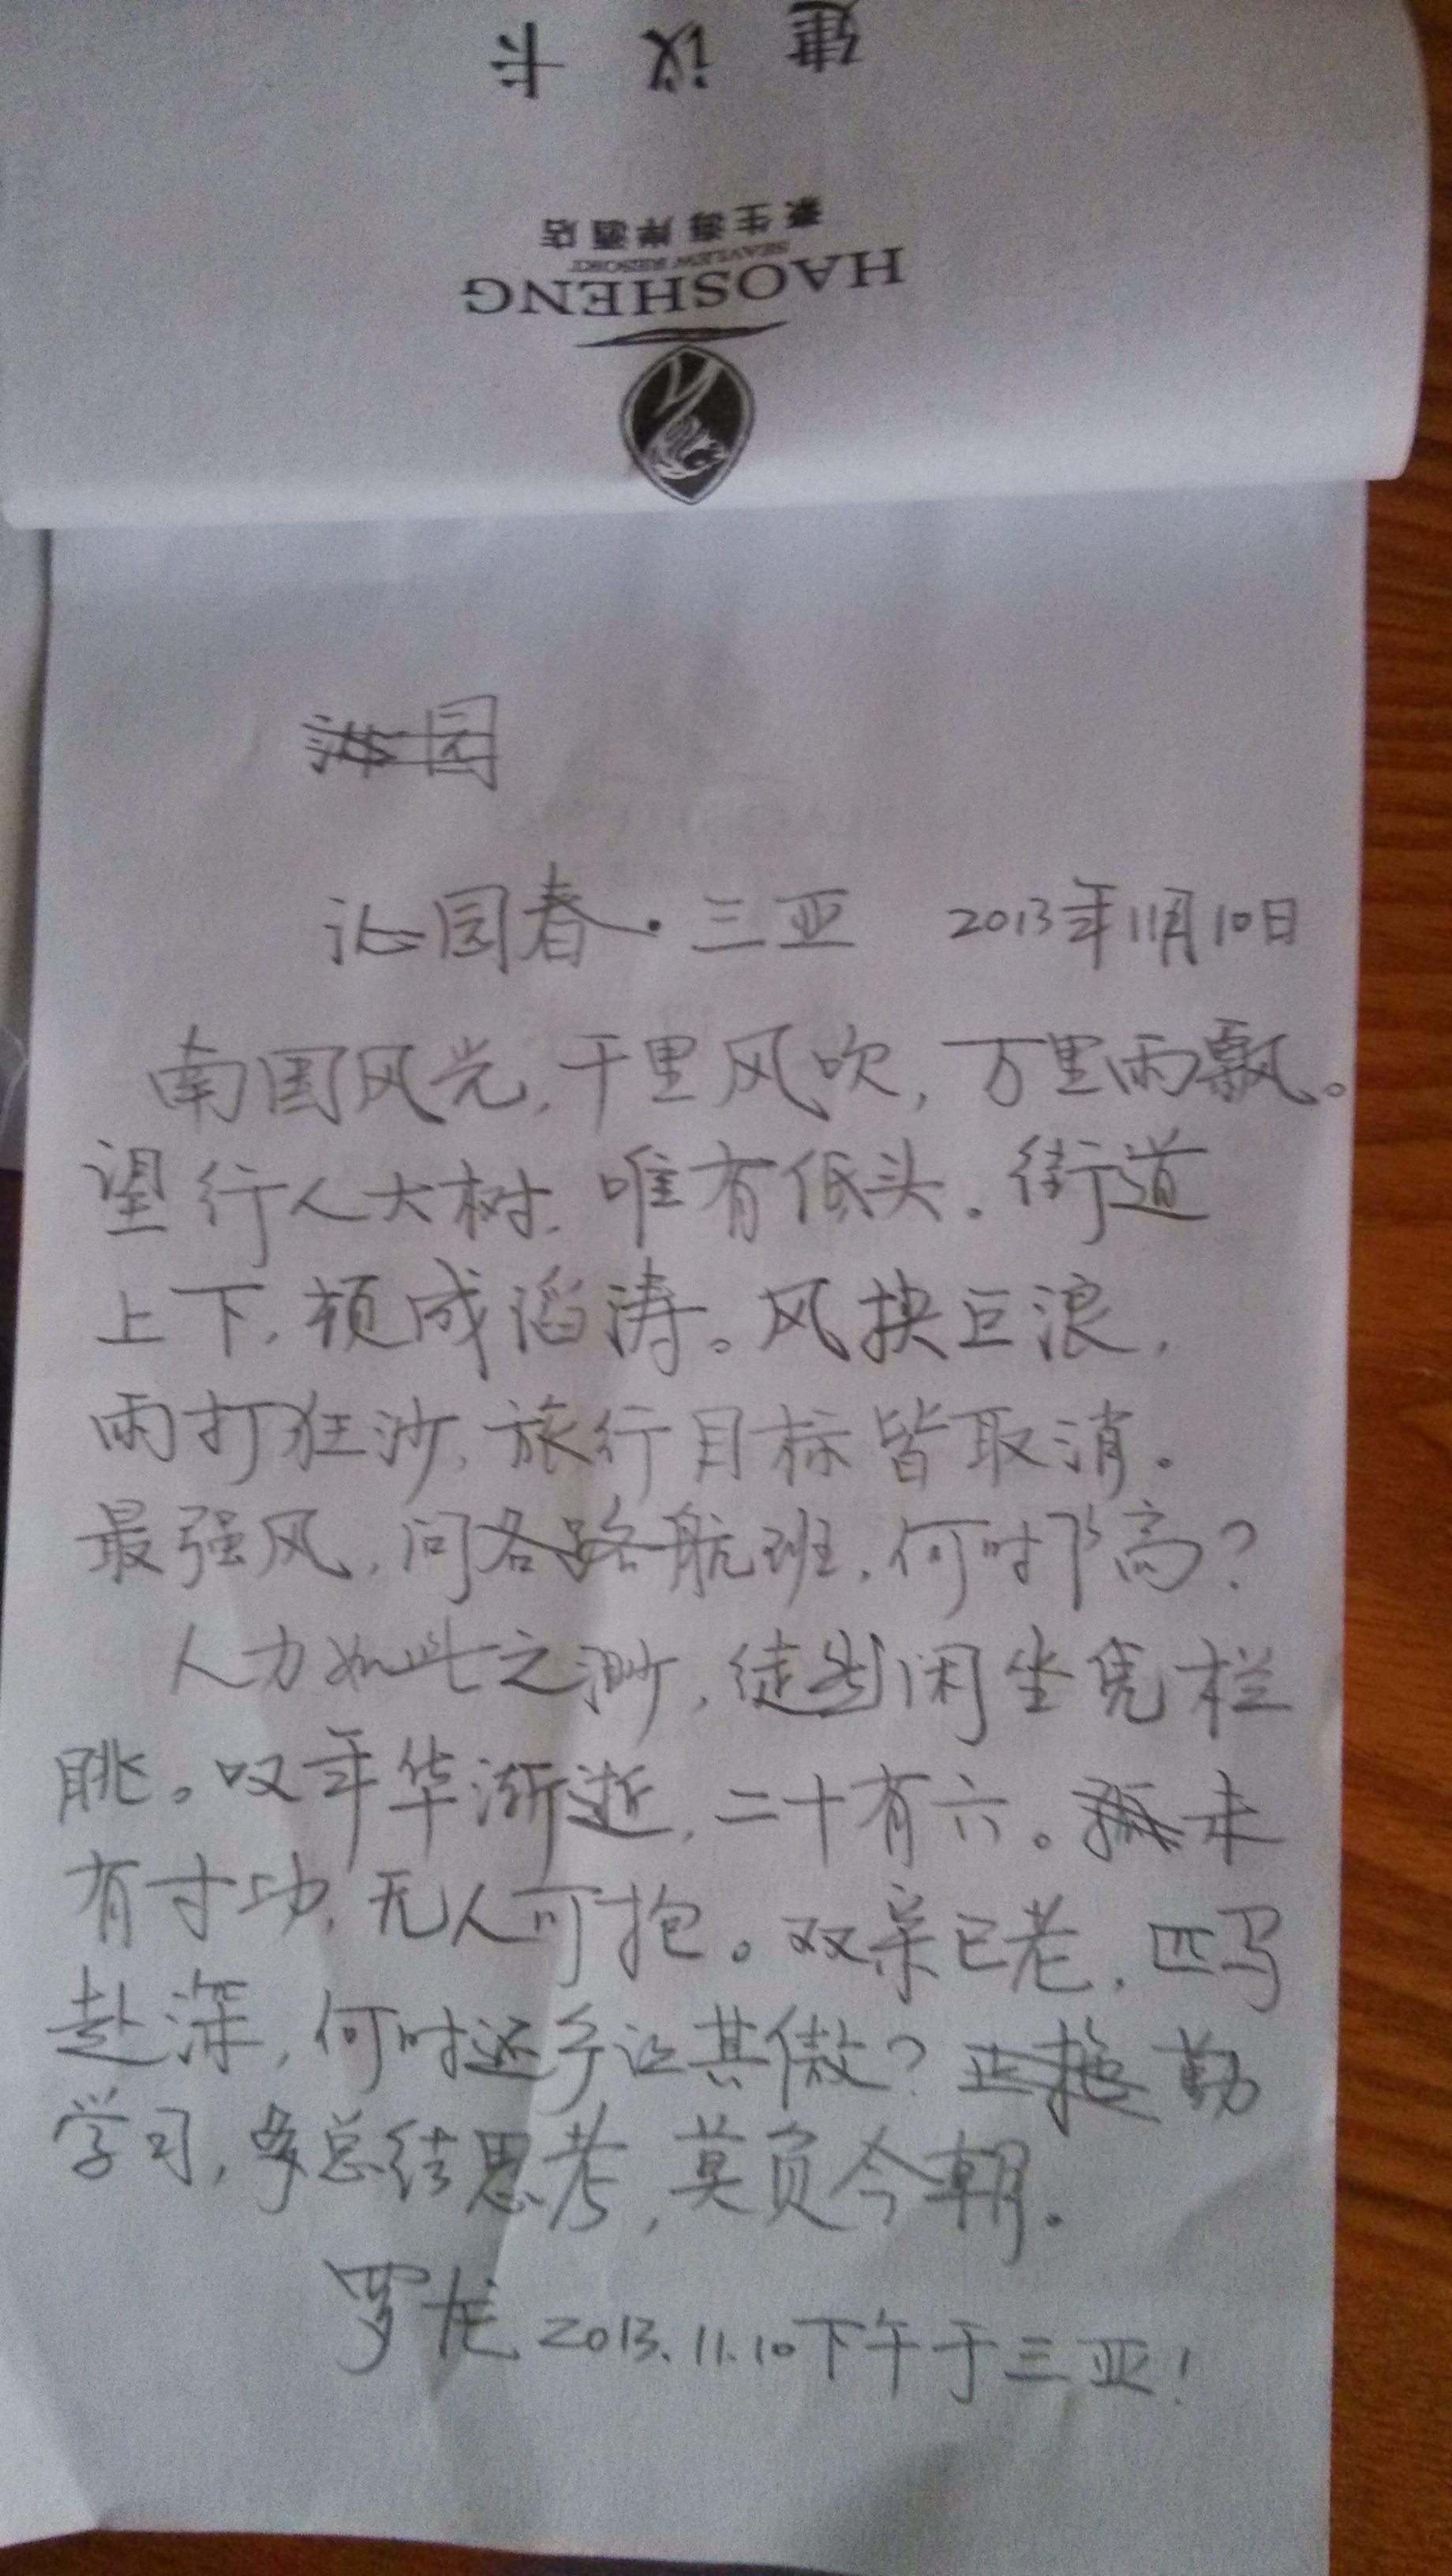 建议卡
豪生海岸酒店
SEAVIEW RESORT
HAOSHENG
沁园春·三亚 2013年11月10日
南国风光,千里风吹,万里雨飘。
望行人大树,唯有低头。街道
上下,顿成滔涛。风挟巨浪,
雨打狂沙,旅行目标皆取消。
最强风,问各路航班,何时下高?
人力如此之渺,徒 闲坐凭栏
眺。叹年华渐逝,二十有六。未
有寸功,无人可抱。双亲已老,匹马
赴深,何时还乡让其傲?勤
学习,多总结思考,莫负今朝。
罗龙 2013.11.10下午于三亚!